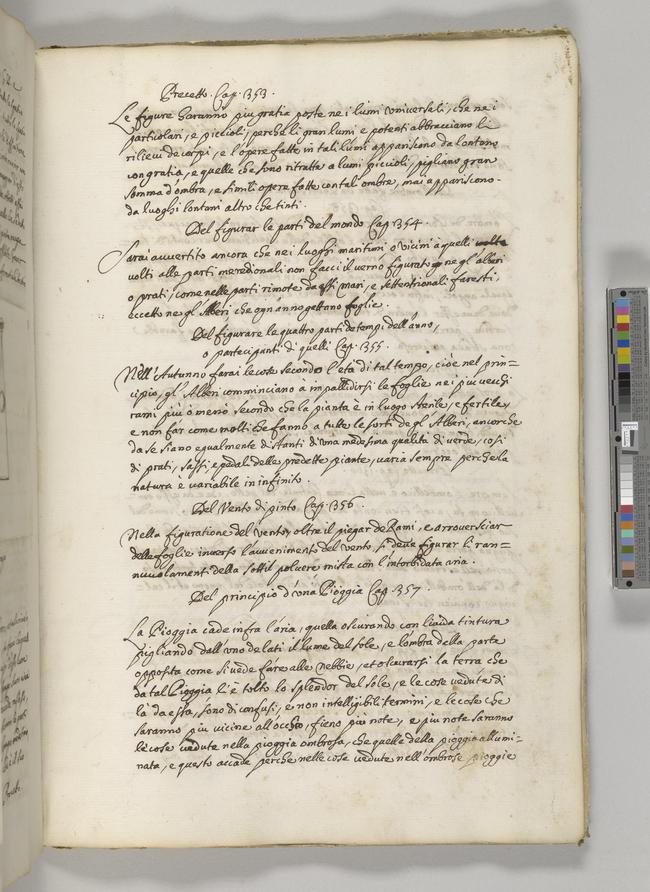 Precetto. Cap. 353.
Le figure haranno più gratia poste ne i lumi universali, che ne i
particolari, e piccioli, perche li gran lumi e potenti abbracciano li
rilievi de corpi, e l'opere fatte in tali lumi appariscono da lontano
con gratia, e quelle che sono ritratte a lumi piccioli, pigliano gran
somma d'ombra, e simili opere fatte con tal ombre, mai appariscono
da luoghi lontani altro che tinti.
Del figurar le parti del mondo Cap. 354.
Sarai avvertito ancora che ne i luoghi maritimi o vicini à quelli
volti alle parti meredionali non facci il verno figurato ne gl'alberi
o prati, come nelle parti rimote da essi mari, e settentrionali faresti,
eccetto ne gl'Alberi che ogn'anno gettano foglie.
Del figurare le quattro parti de tempi dell'anno,
o partecipanti di quelli Cap. 355.
Nell'Autunno farai le cose secondo l'età di tal tempo, cioè nel prin=
cipio, gl'Alberi comminciano à impallidirsi le foglie ne i più vecchi
rami più ò meno secondo che la pianta è in luogo sterile, e fertile,
e non far come molti che fanno a tutte le sorti de gl'Alberi, ancorche
da se siano egualmente distanti d'una medesima qualità di verde, cosi
di prati, sassi, e pedali delle predette piante, varia sempre perche la
natura e variabile in infinito.
Del Vento dipinto Cap. 356.
Nella figuratione del vento, oltre il piegar de Rami, e arroversciar
delle foglie inverso l'avvenimento del vento, si deve figurar li ran=
nuvolamenti della sottil polvere mista con l'intorbidata aria.
Del principio d'una Pioggia Cap. 357.
La Pioggia cade infra l'aria, quella oscurando con livida tintura
pigliando dall'uno de lati il lume del sole, e l'ombra della parte
opposita come si vede fare alle Nebbie, et oscurarsi la terra che
da tal Pioggia li è tolto lo splendor del sole, e le cose vedute di
là da essa, sono di confusi, e non intelligibili termini, e le cose che
saranno più vicine all'occhio, fieno più note, e più note saranno
le cose vedute nella pioggia ombrosa, che quelle della pioggia allumi=
nata, e questo accade perche nelle cose vedute nell'ombrose pioggie